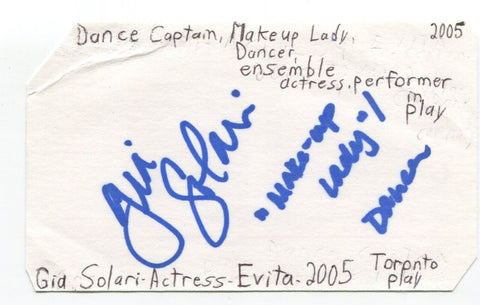 Dance Captain, Makeup Lady, 2005
Dancer,
ensemble
actress, performer
in
play
Gia Solari
"Make-up
Lady"/
Dancer
Gia Solari-Actress-Evita-2005 Toronto
play